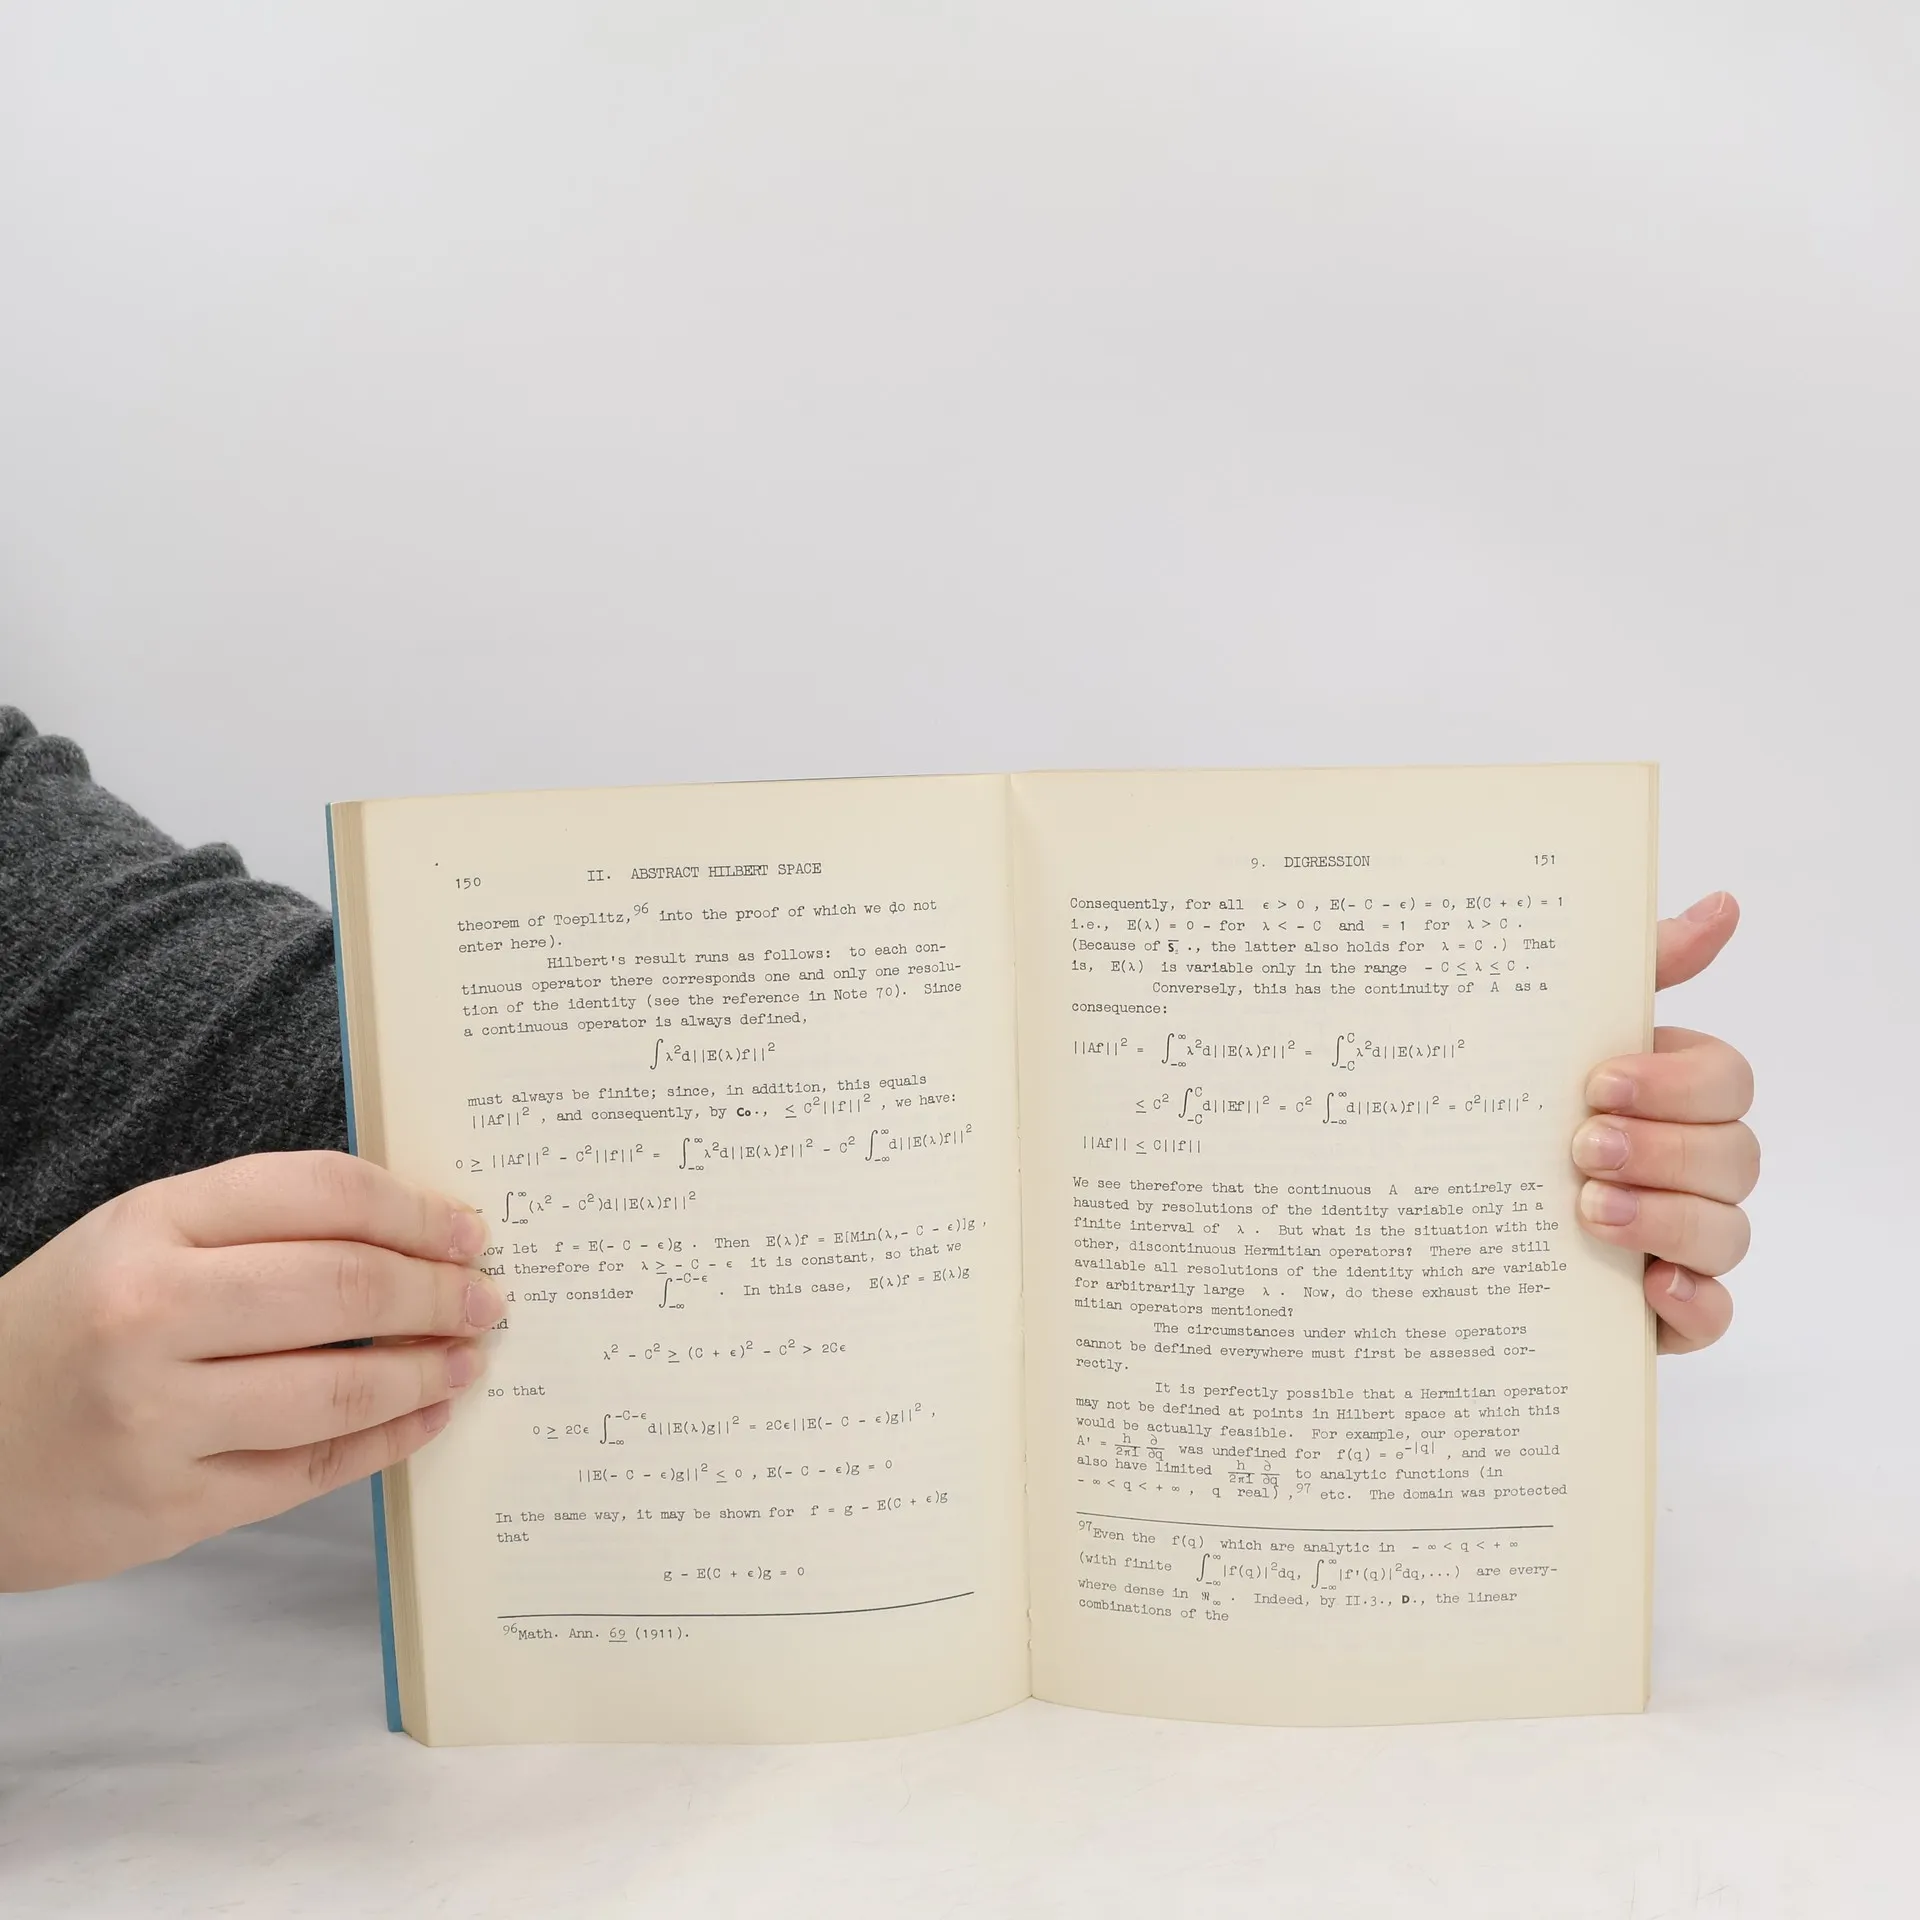 150
II. ABSTRACT HILBERT SPACE
theorem of Toeplitz,⁹⁶ into the proof of which we do not
enter here).
Hilbert's result runs as follows: to each con-
tinuous operator there corresponds one and only one resolu-
tion of the identity (see the reference in Note 70). Since
a continuous operator is always defined,
∫λ²d||E(λ)f||²
must always be finite; since, in addition, this equals
||Af||² , and consequently, by Co., ≤ C²||f||² , we have:
0 ≥ ||Af||² - C²||f||² = ∫_{-∞}^{∞} λ²d||E(λ)f||² - C² ∫_{-∞}^{∞} d||E(λ)f||²
= ∫_{-∞}^{∞} (λ² - C²)d||E(λ)f||²
ow let f = E(- C - ε)g . Then E(λ)f = E[Min(λ,- C - ε)]g ,
and therefore for λ ≥ - C - ε it is constant, so that we
d only consider ∫_{-∞}^{-C-ε} . In this case, E(λ)f = E(λ)g
nd
λ² - C² ≥ (C + ε)² - C² > 2Cε
so that
0 ≥ 2Cε ∫_{-∞}^{-C-ε} d||E(λ)g||² = 2Cε||E(- C - ε)g||² ,
||E(- C - ε)g||² ≤ 0 , E(- C - ε)g = 0
In the same way, it may be shown for f = g - E(C + ε)g
that
g - E(C + ε)g = 0
⁹⁶Math. Ann. 69 (1911).
9. DIGRESSION
151
Consequently, for all ε > 0 , E(- C - ε) = 0, E(C + ε) = 1
i.e., E(λ) = 0 - for λ < - C and = 1 for λ > C .
(Because of S̅₂., the latter also holds for λ = C .) That
is, E(λ) is variable only in the range - C ≤ λ ≤ C .
Conversely, this has the continuity of A as a
consequence:
||Af||² = ∫_{-∞}^{∞} λ²d||E(λ)f||² = ∫_{-C}^{C} λ²d||E(λ)f||²
≤ C² ∫_{-C}^{C} d||Ef||² = C² ∫_{-∞}^{∞} d||E(λ)f||² = C²||f||² ,
||Af|| ≤ C||f||
We see therefore that the continuous A are entirely ex-
hausted by resolutions of the identity variable only in a
finite interval of λ . But what is the situation with the
other, discontinuous Hermitian operators? There are still
available all resolutions of the identity which are variable
for arbitrarily large λ . Now, do these exhaust the Her-
mitian operators mentioned?
The circumstances under which these operators
cannot be defined everywhere must first be assessed cor-
rectly.
It is perfectly possible that a Hermitian operator
may not be defined at points in Hilbert space at which this
would be actually feasible. For example, our operator
A' = h/2πi ∂/∂q was undefined for f(q) = e^{-|q|} , and we could
also have limited h/2πi ∂/∂q to analytic functions (in
- ∞ < q < + ∞ , q real) ,⁹⁷ etc. The domain was protected
⁹⁷Even the f(q) which are analytic in - ∞ < q < + ∞
(with finite ∫_{-∞}^{∞} |f(q)|²dq, ∫_{-∞}^{∞} |f'(q)|²dq,...) are every-
where dense in ℜ_∞ . Indeed, by II.3., D., the linear
combinations of the